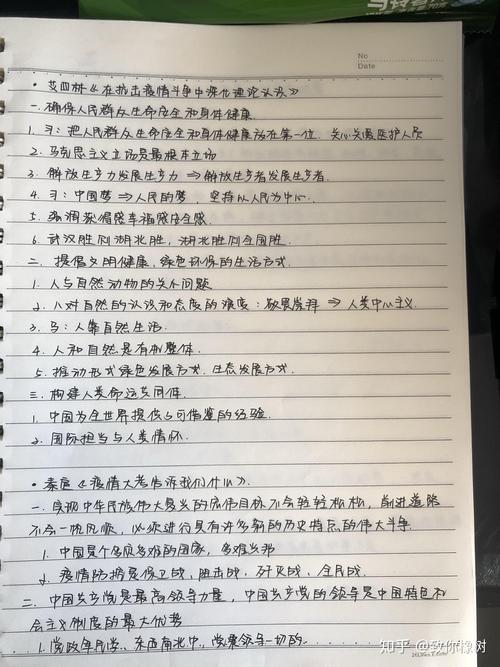 No
Date
• 艾四林《在抗击疫情斗争中深化理论认识》
一. 确保人民群众生命安全和身体健康.
1. 习: 把人民群众生命安全和身体健康放在第一位. 关心关爱医护人员
2. 马克思主义立场是最根本立场
3. 解放生产力发展生产力 ⇒ 解放生产者发展生产者.
4. 习: 中国梦 ⇒ 人民的梦, 坚持以人民为中心.
5. 强调获得感幸福感安全感.
6. 武汉胜则湖北胜, 湖北胜则全国胜.
二. 提倡文明健康, 绿色环保的生活方式.
1. 人与自然动物的关系问题
2. 人对自然的认识和态度的演变: 敬畏崇拜 ⇒ 人类中心主义.
3. 马: 人靠自然生活.
4. 人和自然是有机整体.
5. 推动形成绿色发展方式. 生态发展方式.
三. 构建人类命运共同体.
1. 中国为全世界提供了可借鉴的经验.
2. 国际担当与人类情怀.
• 秦宣《疫情大考告诉我们什么》.
一. 实现中华民族伟大复兴的宏伟目标不会轻轻松松, 前进道路
不会一帆风顺, 必须进行具有许多新的历史特点的伟大斗争.
1. 中国是个多灾多难的国家, 多难兴邦
2. 疫情防控是保卫战, 阻击战, 歼灭战, 全民战.
二. 中国共产党是最高领导力量, 中国共产党的领导是中国特色社
会主义制度的最大优势
1. 党政军民学, 东西南北中, 党是领导一切的.
知乎 @致你橡树